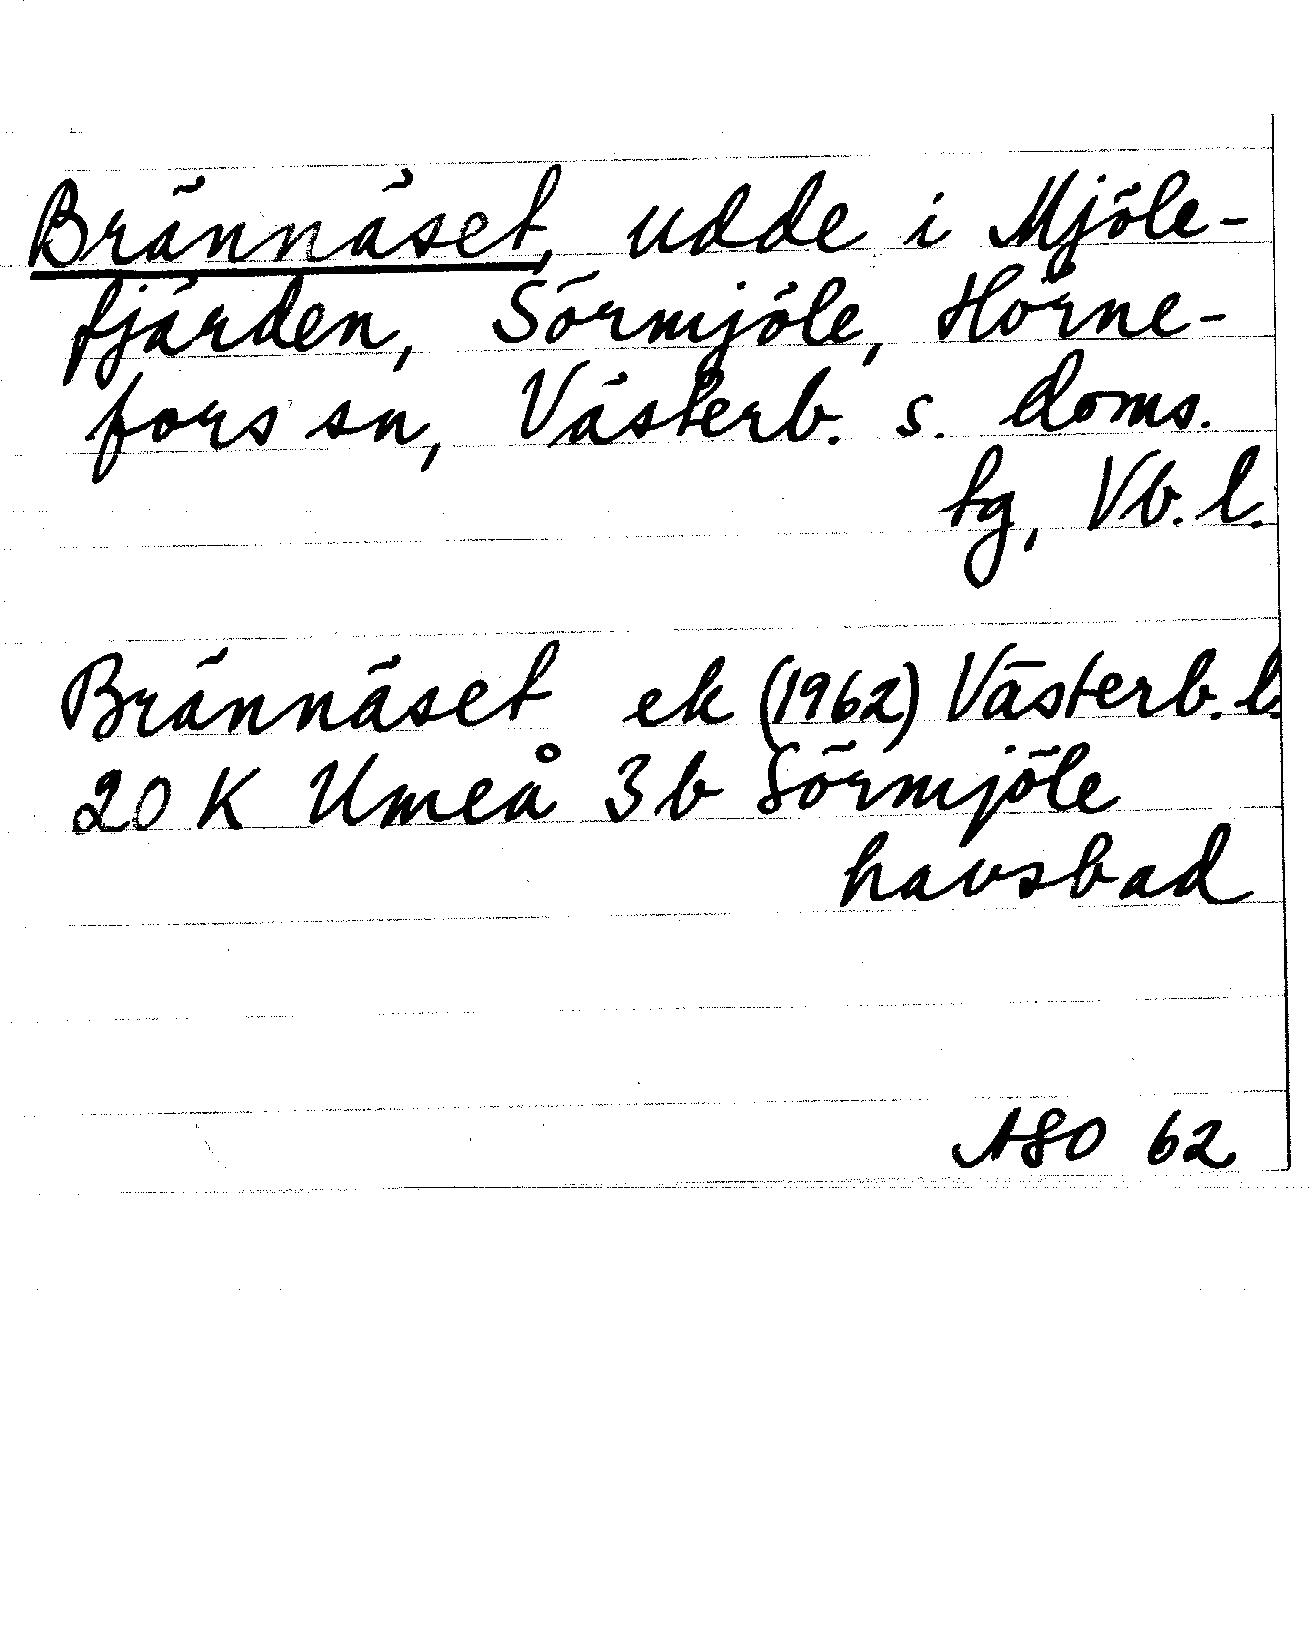 Brännäset, udde i Mjöle-
fjärden, Sörmjöle, Hörne-
fors sn, Västerb. s. doms.
tg, Vb. l.
Brännäset ek (1962) Västerb. l.
20 K Umeå 3 b Sörmjöle
havsbad
ASO 62